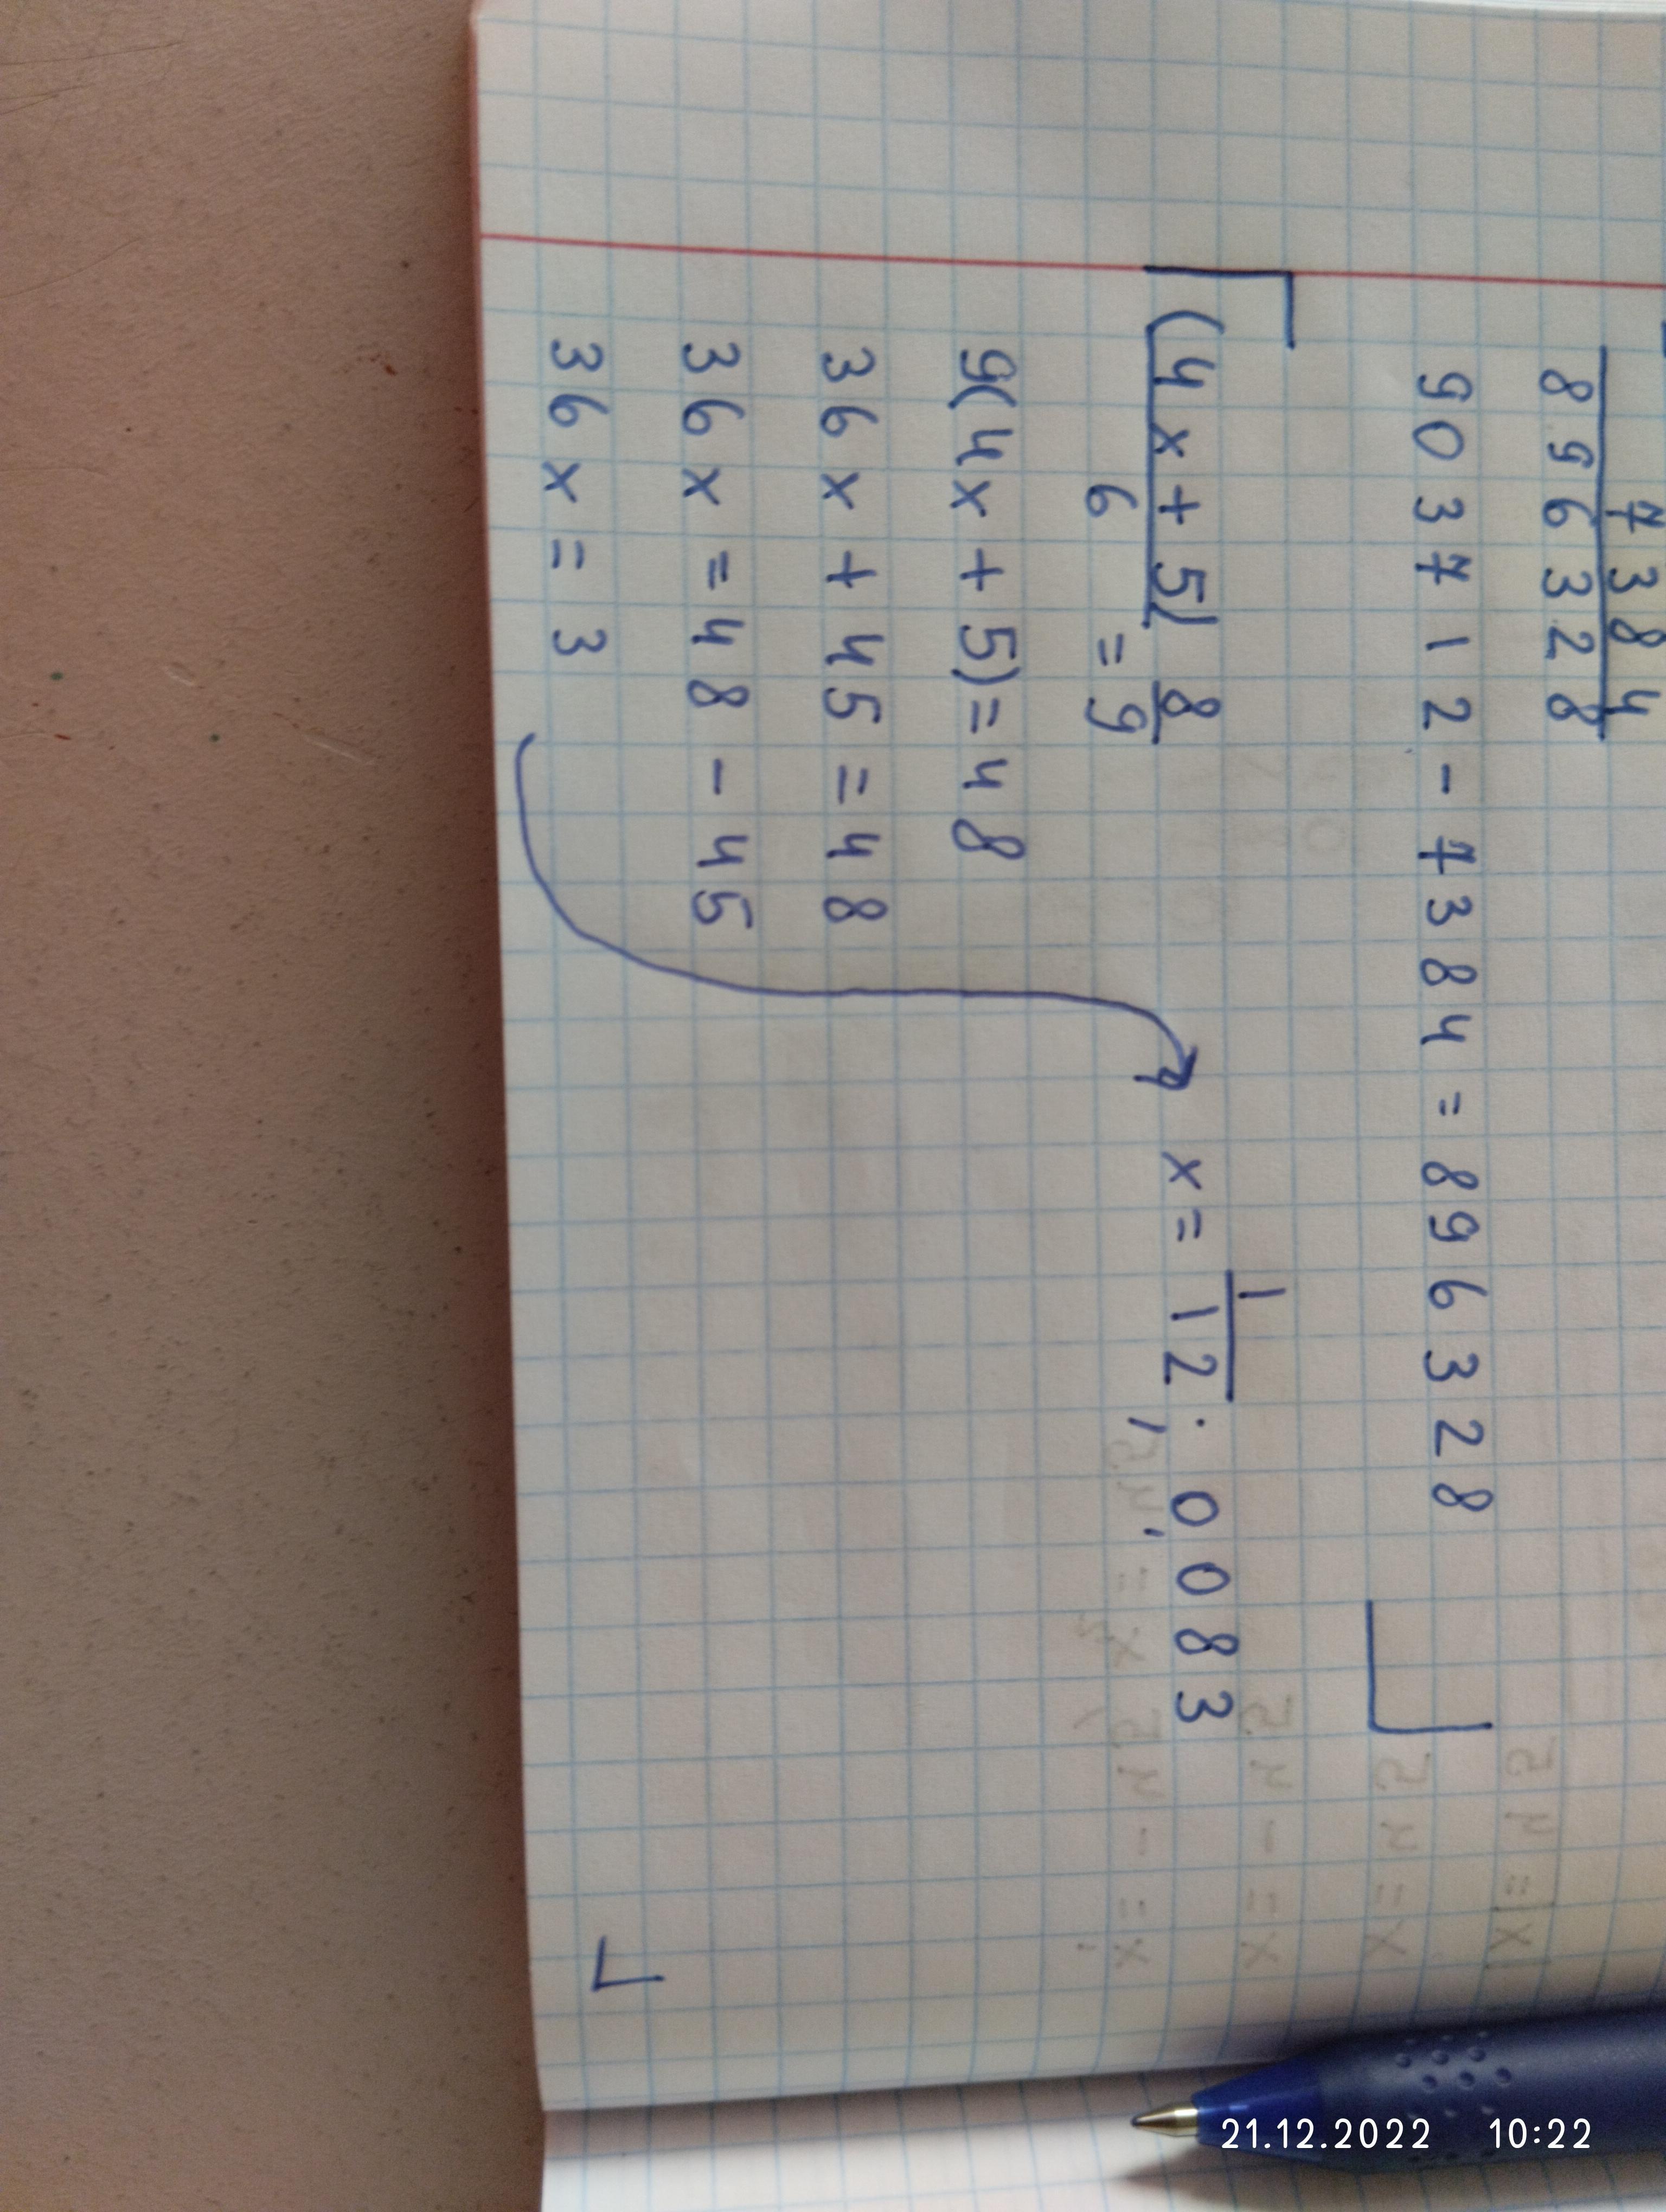 7384
896328
903712-7384=896328
(4x+5)/6 = 8/9
9(4x+5)=48
36x+45=48
36x=48-45
36x=3
x=1/12; 0,083
21.12.2022 10:22